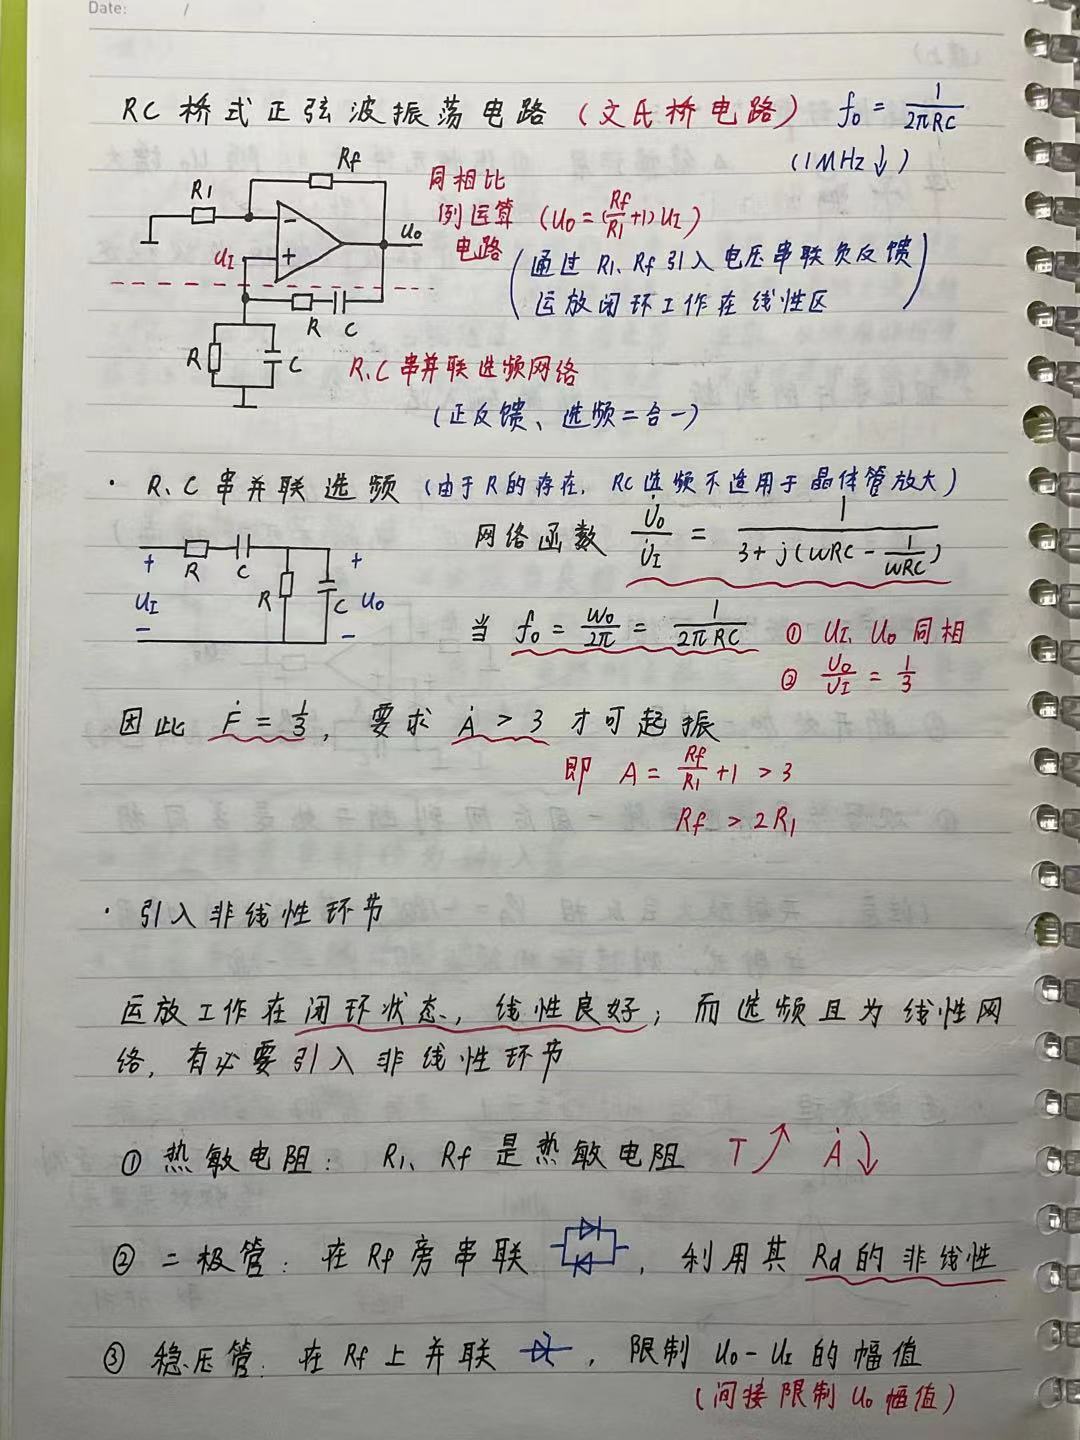 Date: /
RC 桥式正弦波振荡电路 (文氏桥电路) f₀ = 1/(2πRC)
(1MHz↓)
Rf
R1
同相比
例运算 (U₀ = (Rf/R1 + 1) UI)
电路
U₀
UI
− 
+
(通过 R1、Rf 引入电压串联负反馈
运放闭环工作在线性区)
R C
R C
R、C 串并联选频网络
(正反馈、选频二合一)
· R、C 串并联选频 (由于R的存在, RC选频不适用于晶体管放大)
网络函数 U̇₀/U̇I = 1/(3 + j(ωRC − 1/(ωRC)))
+ R C +
UI R C U₀
− −
当 f₀ = ω₀/2π = 1/(2πRC) ① UI、U₀ 同相
② U₀/UI = 1/3
因此 Ḟ = 1/3, 要求 Ȧ > 3 才可起振
即 A = Rf/R1 + 1 > 3
Rf > 2R1
· 引入非线性环节
运放工作在闭环状态, 线性良好; 而选频且为线性网
络, 有必要引入非线性环节
① 热敏电阻: R1、Rf 是热敏电阻 T↗ Ȧ↓
② 二极管: 在 Rf 旁串联 , 利用其 Rd 的非线性
③ 稳压管: 在 Rf 上并联 , 限制 U₀−UI 的幅值
(间接限制 U₀ 幅值)